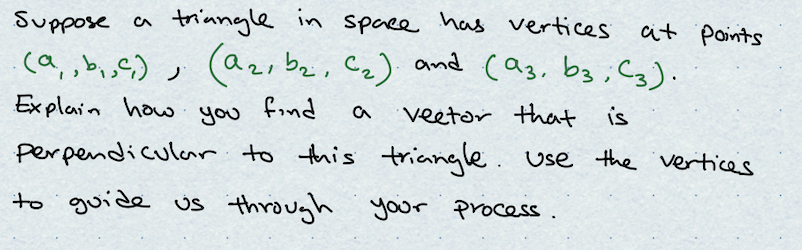 Suppose a triangle in space has vertices at points
(a₁, b₁, c₁), (a₂, b₂, c₂) and (a₃, b₃, c₃).
Explain how you find a vector that is
perpendicular to this triangle. Use the vertices
to guide us through your process.